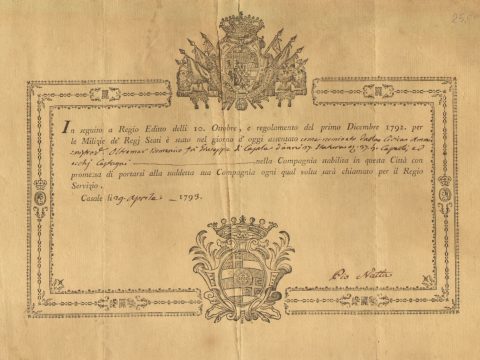 25.
In seguito a Regio Editto delli 10. Ottobre, e regolamento del primo Dicembre 1792. per
le Milizie de' Regj Stati è stato nel giorno d' oggi assentato come
Domenico fu Giuseppe di Casale d'anni
nella Compagnia stabilita in questa Città con
promessa di portarsi alla suddetta sua Compagnia ogni qual volta sarà chiamato per il Regio
Servizio.
Casale li 29 Agosto 1793.
Pio Natta